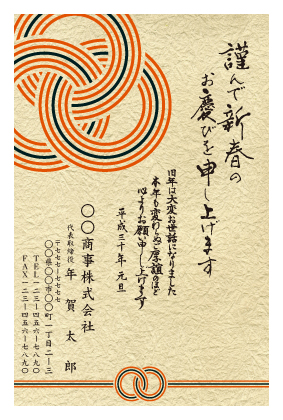 謹んで新春の
お慶びを申し上げます
旧年は大変お世話になりました
本年も変わらぬご厚誼のほど
心よりお願い申し上げます
平成三十年 元旦
〇〇商事株式会社
代表取締役 年賀太郎
〒七七七-七七七七
〇〇県〇〇市〇〇町一丁目二-三
TEL 一二三-四五六-七八九〇
FAX 一二三-四五六-七八九〇